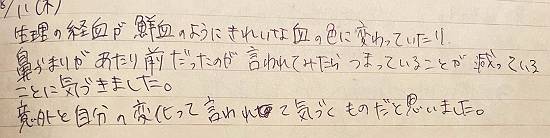 8/11(木)
生理の経血が鮮血のようにきれいな血の色に変わっていたり
鼻づまりがあたり前だったのが言われてみたらつまっていることが減っている
ことに気づきました。
意外と自分の変化って言われて気づくものだと思いました。